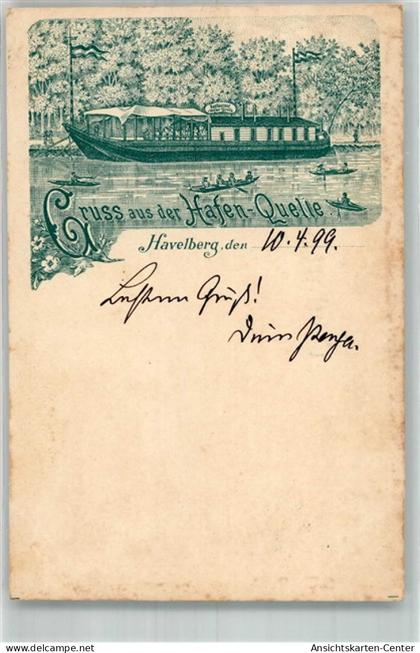 Gruss aus der Hafen-Quelle.
Havelberg, den 10.4.99.
Gruß!
Ansichtskarten-Center